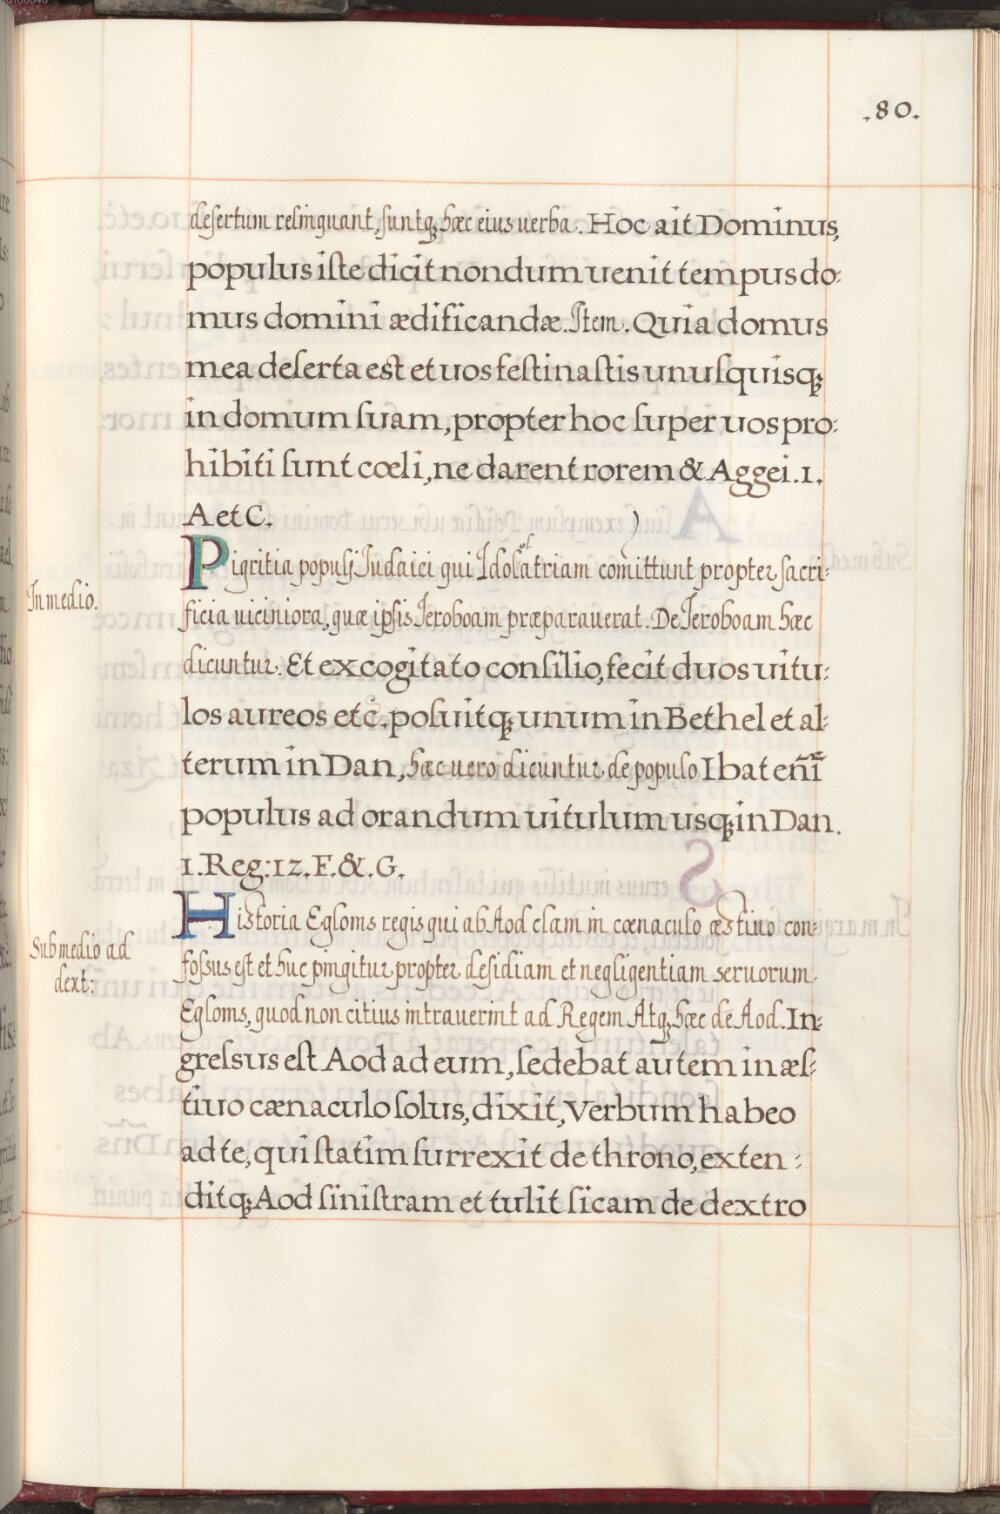 .80.
desertum relinquant, suntq; hæc eius uerba. Hoc ait Dominus,
populus iste dicit nondum uenit tempus do:
mus domini ædificandæ. Item. Quia domus
mea deserta est et uos festinastis unusquisq;
in domum suam, propter hoc super uos pro:
hibiti sunt cœli, ne darent rorem & Aggei.1.
A et C.
Pigritia populi Iudaici qui Idololatriam comittunt propter sacri:
In medio.
ficia uiciniora, quæ ipsis Jeroboam præparauerat. De Jeroboam hæc
dicuntur. Et excogitato consilio, fecit duos uitu:
los aureos etc̃. posuitq; unum in Bethel et al:
terum in Dan, hæc uero dicuntur de populo Ibat enĩ
populus ad orandum uitulum usq; in Dan.
1. Reg: 12. F. &. G.
Historia Egloms regis qui ab Aod clam in cœnaculo æstiuo con:
Sub medio ad
dext:
fossus est et huc pingitur propter desidiam et negligentiam seruorum
Egloms, quod non citius intrauerint ad Regem Atq; hæc de Aod. In:
gressus est Aod ad eum, sedebat autem in æs:
tiuo cænaculo solus, dixit, Verbum habeo
ad te, qui statim surrexit de throno, exten:
ditq; Aod sinistram et tulit sicam de dextro